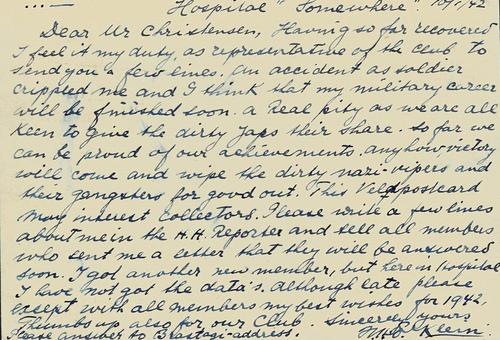 ...—
Hospital "Somewhere". 10/1/42
Dear Mr Christensen, Having so far recovered
I feel it my duty, as representative of the club to
send you a few lines. An accident as soldier
crippled me and I think that my military career
will be finished soon. a Real pity as we are all
keen to give the dirty Japs their share. so far we
can be proud of our achievements. anyhow victory
will come and wipe the dirty nazi-vipers and
their gangsters for good out. This Veldpostcard
may interest collectors. Please write a few lines
about me in the H.H. Reporter and tell all members
who sent me a letter that they will be answered
soon. I got another new member, but here in Hospital
I have not got the data's. Although late please
except with all members my best wishes for 1942.
Thumbs up also for our Club. Sincerely yours
Please answer to Brastagi-address. Klein